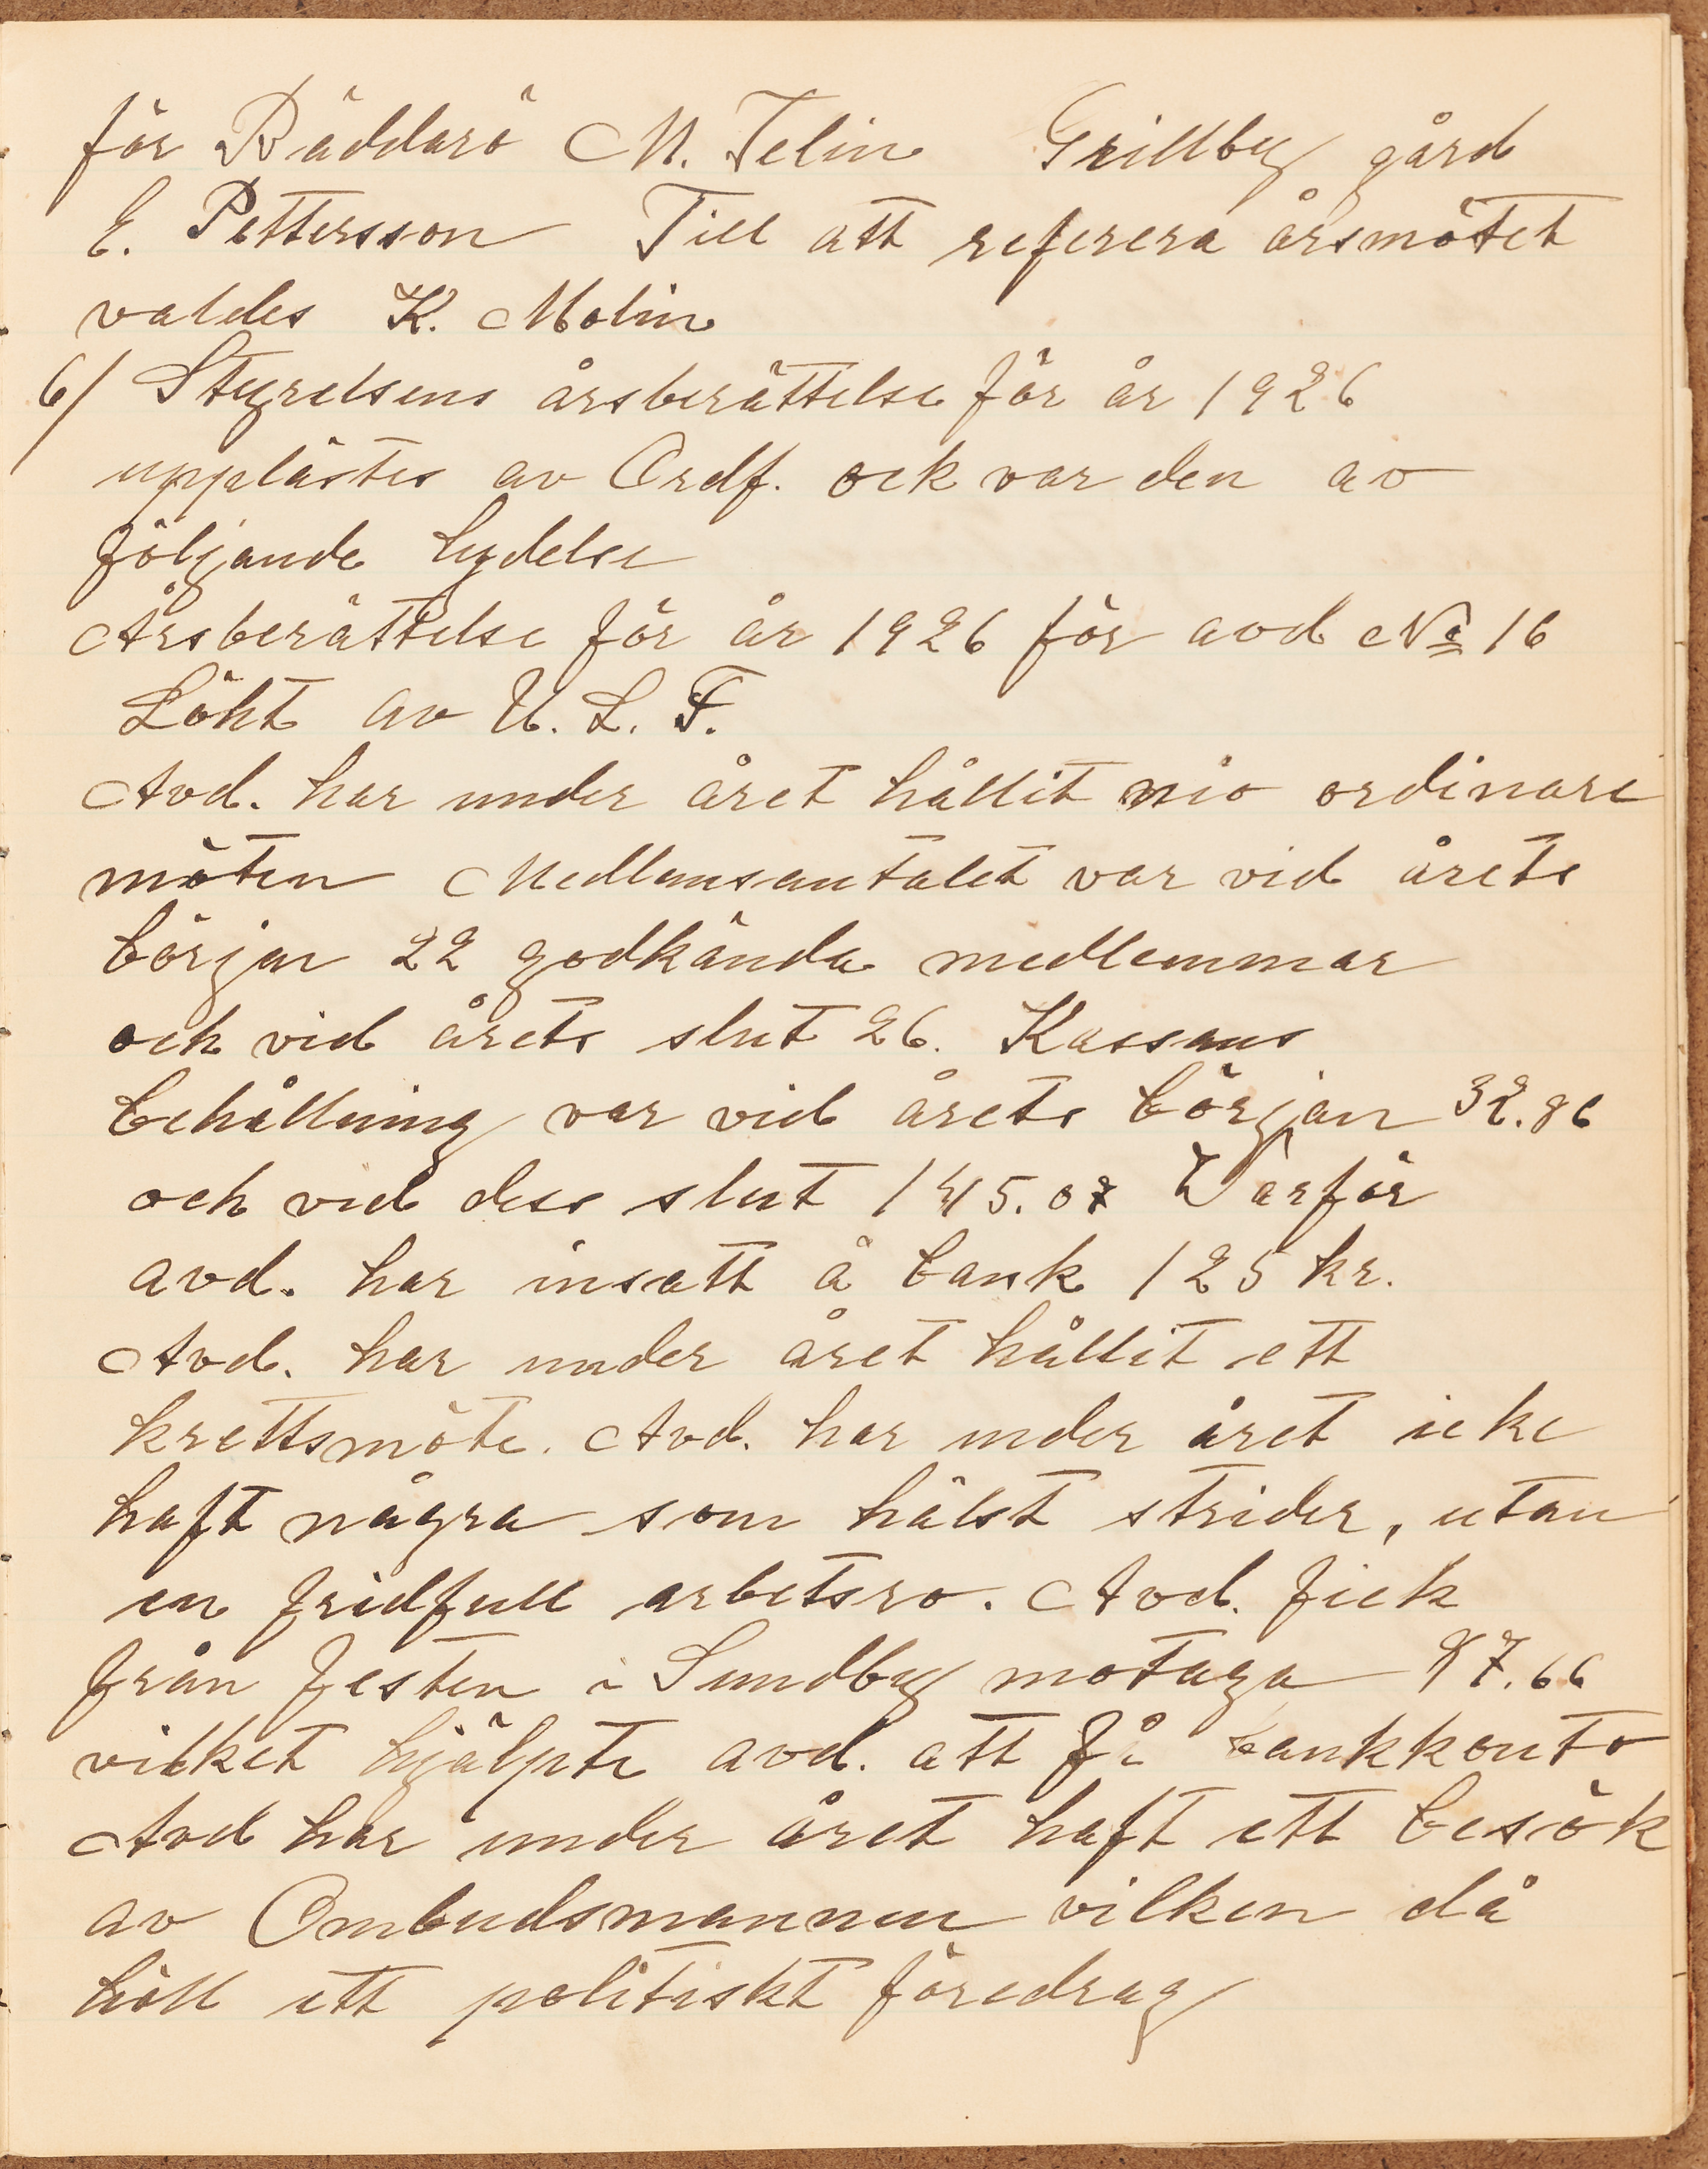 för Räddarö M. Telin Grillby gård
E. Pettersson Till att referera årsmötet
valdes K. Molin
6/ Styrelsens årsberättelse för år 1926
upplästes av Ordf. ock var den av
följande lydelse
Årsberättelse för år 1926 för avd No 16
Löht av U. L. F.
Avd. har under året hållit nio ordinare
möten Medlemsantalet var vid årets
börjar 22 godkända medlemmar
och vid årets slut 26. Kassans
behållning var vid årets början 32.86
och vid dess slut 145.07 Varför
avd. har insatt å bank 125 kr.
Avd. har under året hållit ett
krettsmöte. Avd. har under året icke
haft några som hälst strider, utan
en fridfull arbetsro. Avd. fick
från festen i Sundby motaga 97.66
vilket hjälpte avd. att få bankkonto
Avd har under året haft ett besök
av Ombudsmannen vilken då
höll ett politiskt föredrag